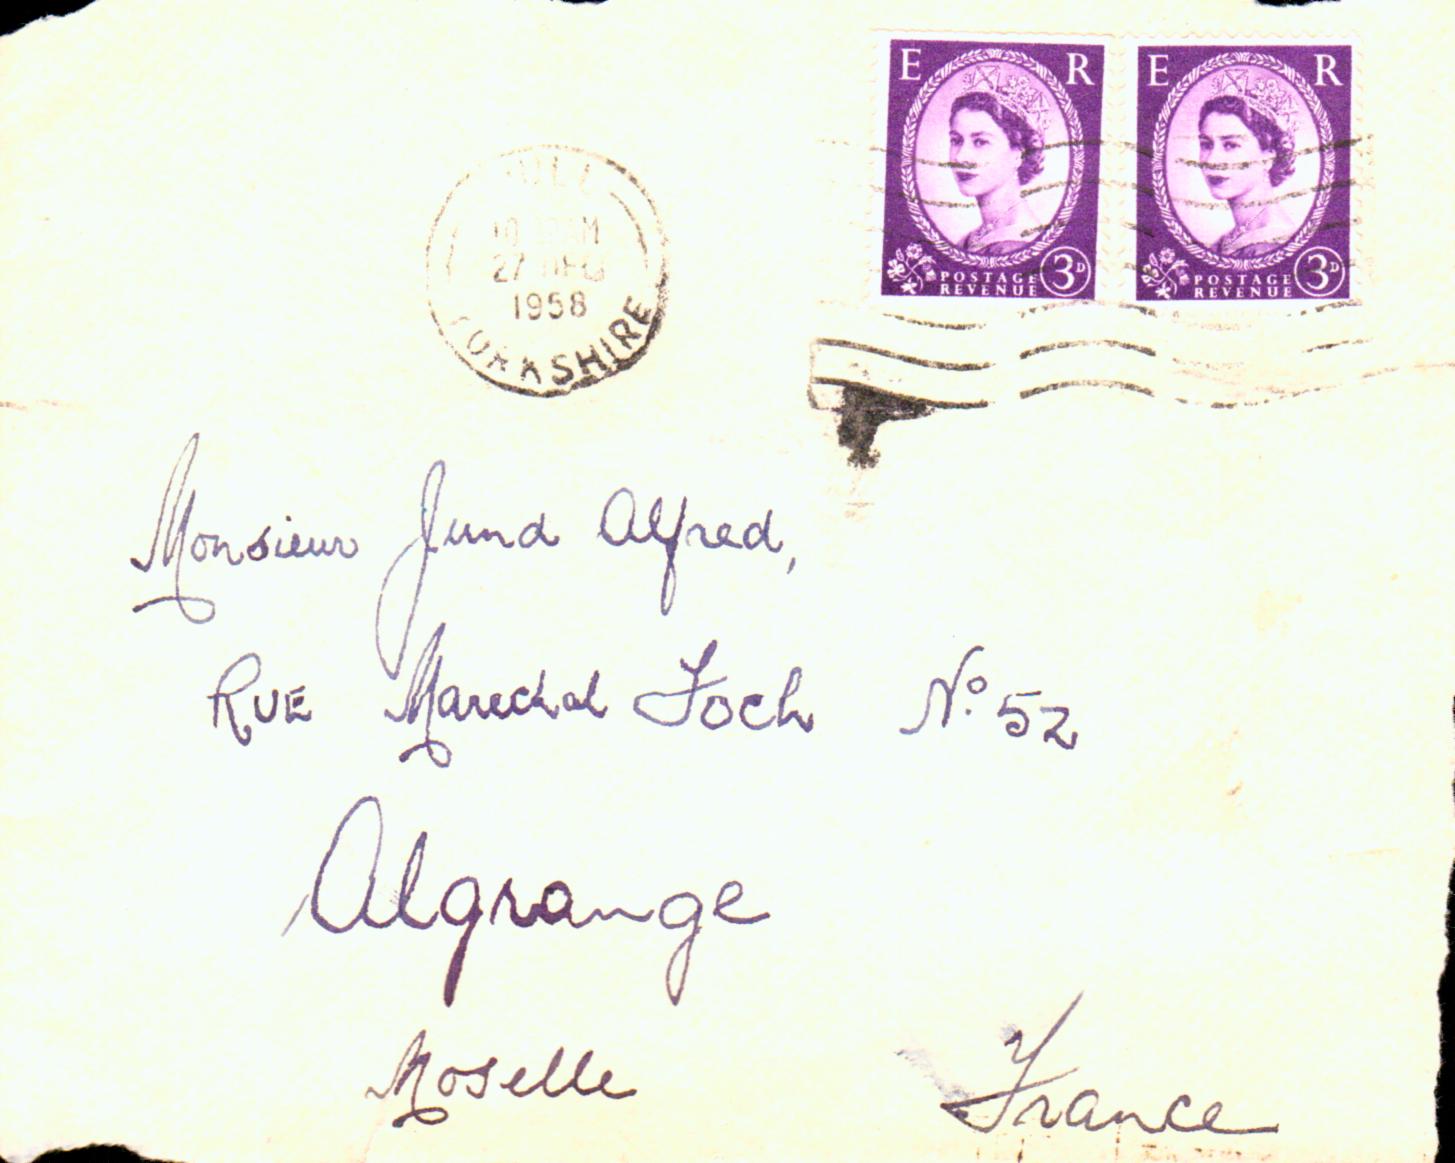 E R E R
POSTAGE REVENUE 3D
POSTAGE REVENUE 3D
27
1958
YORKSHIRE
Monsieur Jund Alfred,
RUE Marechal Foch No 52
Algrange
Moselle
France